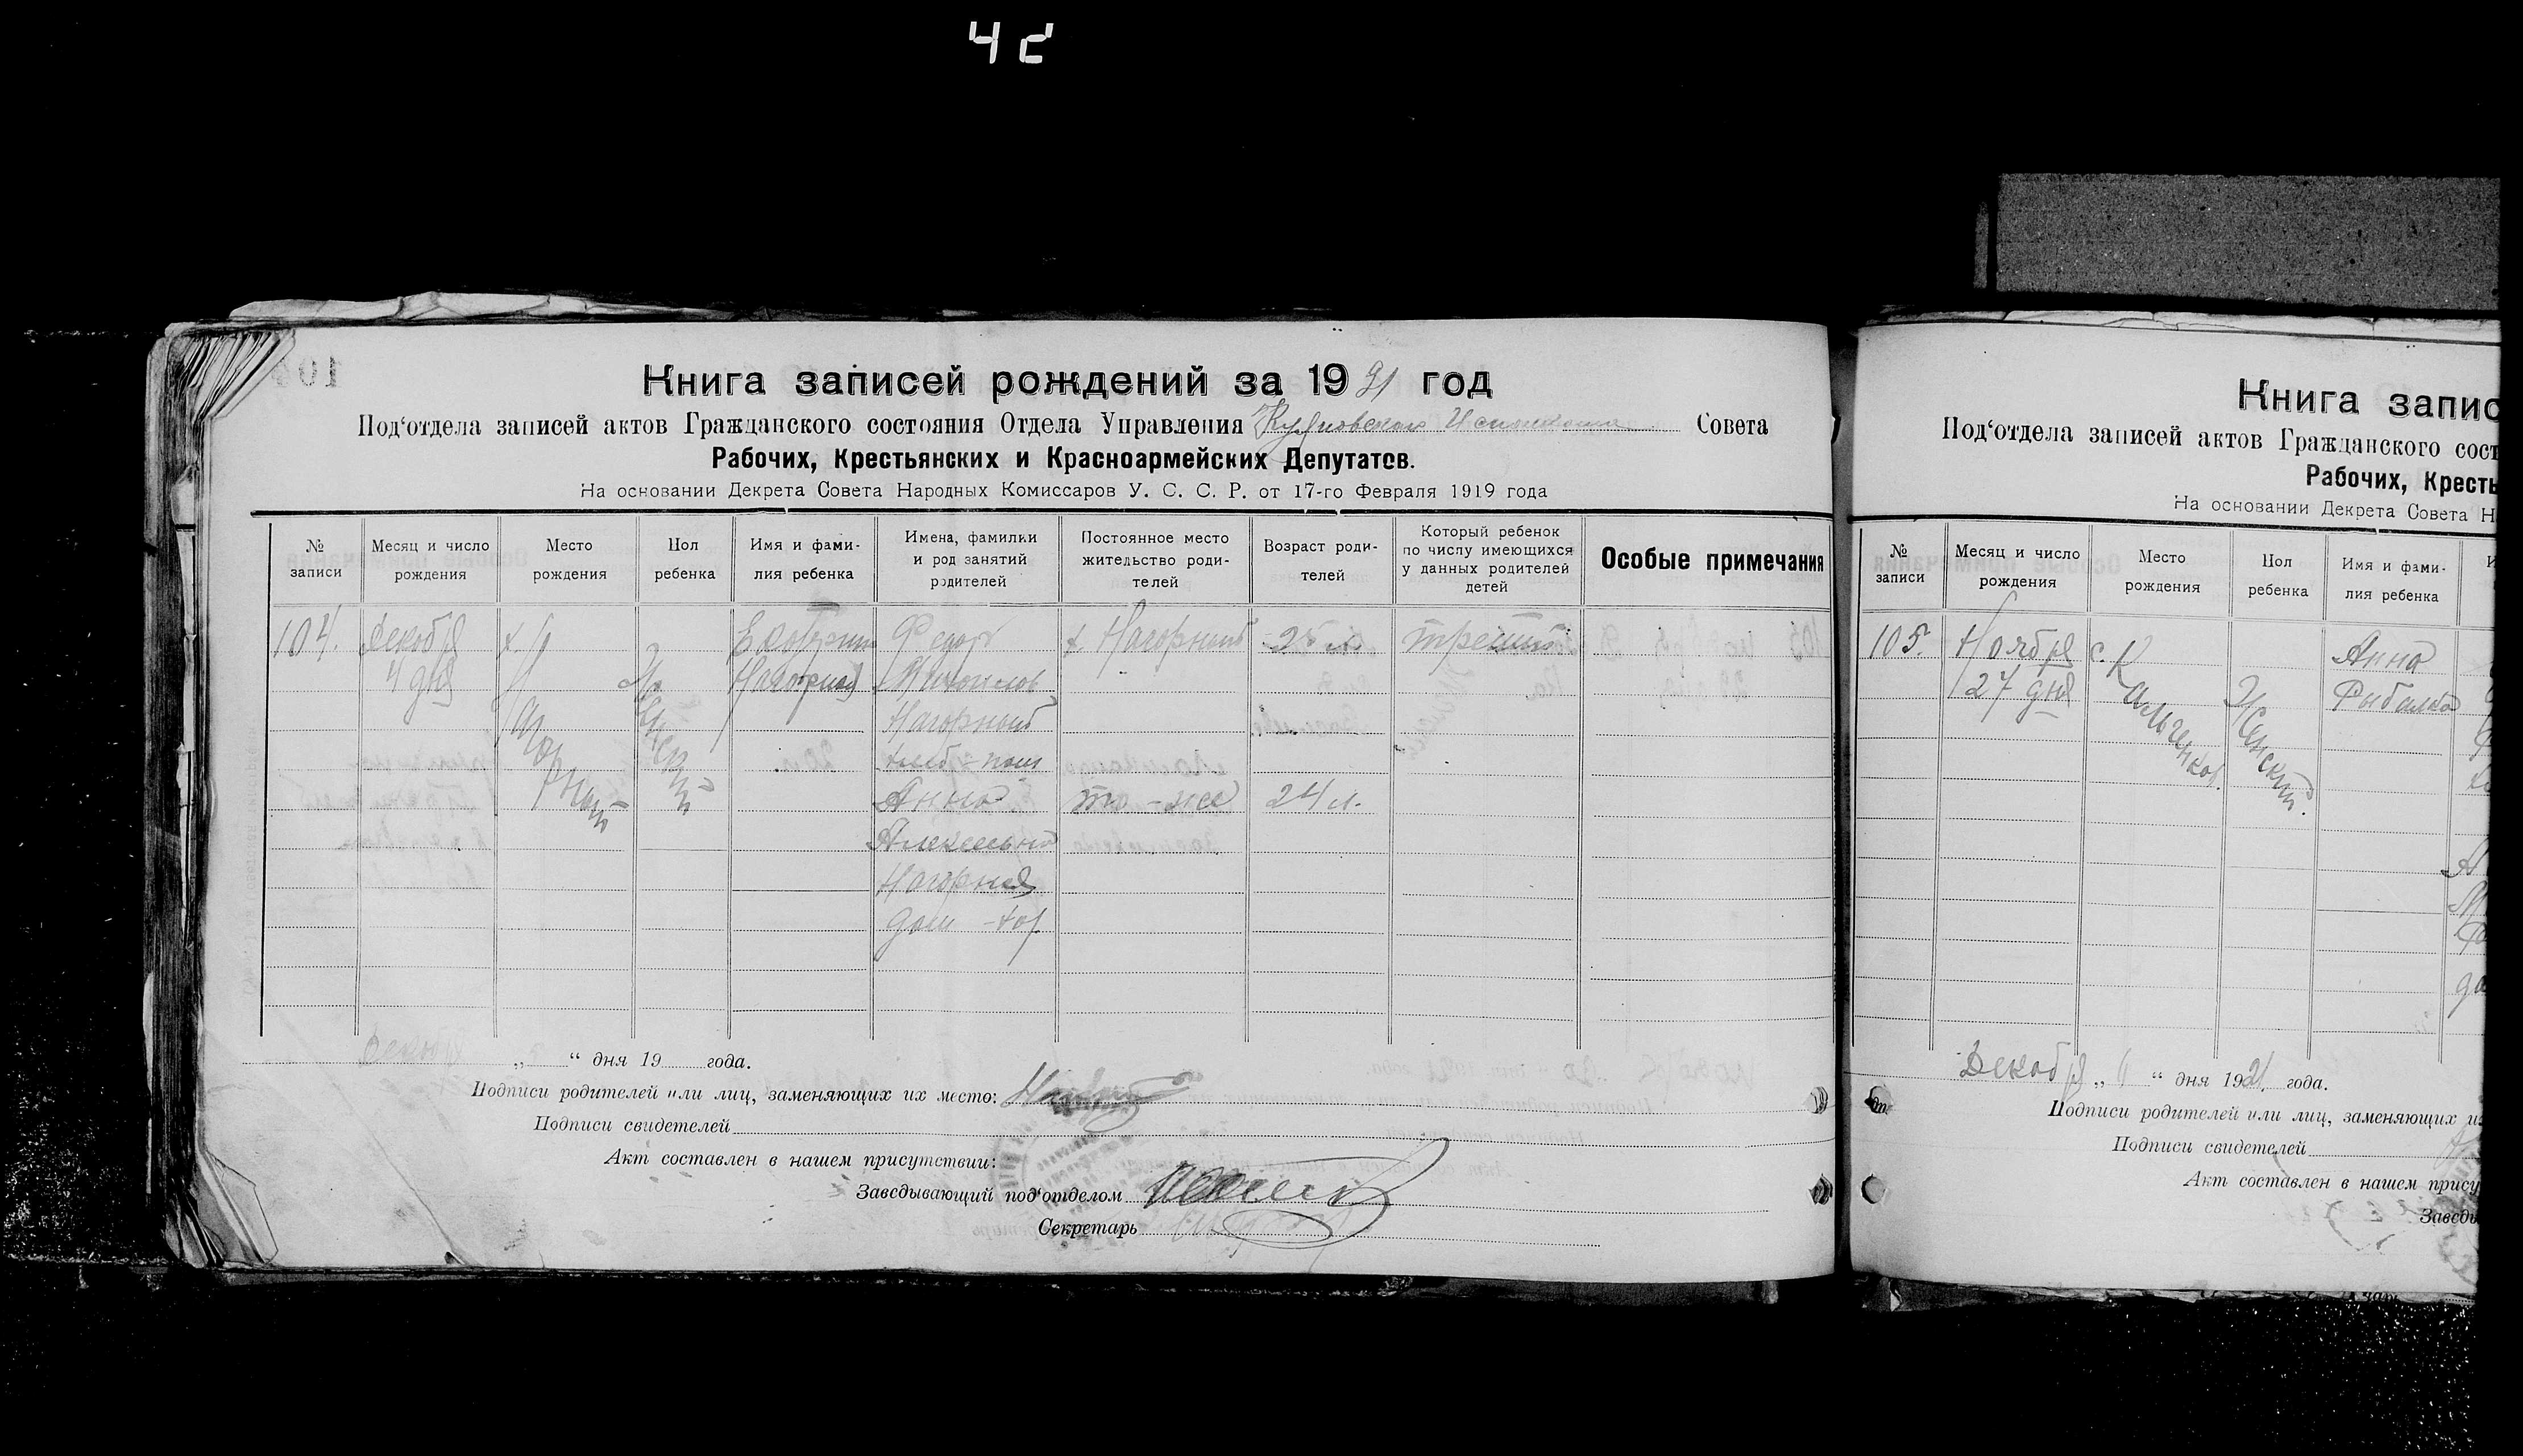 Книга записей рождений за 1921 год
Под‘отдела записей актов Гражданского состояния Отдела Управления Совета
Рабочих, Крестьянских и Красноармейских Депутатов.
На основании Декрета Совета Народных Комиссаров У. С. С. Р. от 17-го Февраля 1919 года
№ записи
Месяц и число рождения
Место рождения
Пол ребенка
Имя и фами-
лия ребенка
Имена, фамилии
и род занятий
родителей
Постоянное место
жительство роди-
телей
Возраст роди-
телей
Который ребенок
по числу имеющихся
у данных родителей
детей
Особые примечания
104.
Декабря
4 дня
х. Нагорный
Женский
Екатерина
Нагорная
Федор
Михайлов
Нагорный
хлеб-паш
Анна
Алексеевна
Нагорная
дом-хоз
х. Нагорный
то-же
25 л.
24 л.
третий
Декабря „ “ дня 19 года.
Подписи родителей или лиц, заменяющих их место:
Подписи свидетелей
Акт составлен в нашем присутствии:
Заведывающий под‘отделом
Секретарь
Книга запис
Под‘отдела записей актов Гражданского сост
Рабочих, Кресть
На основании Декрета Совета Н
№ записи
Месяц и число рождения
Место рождения
Пол ребенка
Имя и фами-
лия ребенка
105.
Ноября
27 дня
с. Кальченков.
Женский.
Анна
Рыбалка
Декабря „6“ дня 1921 года.
Подписи родителей или лиц, заменяющих и
Подписи свидетелей
Акт составлен в нашем прису
Заведы